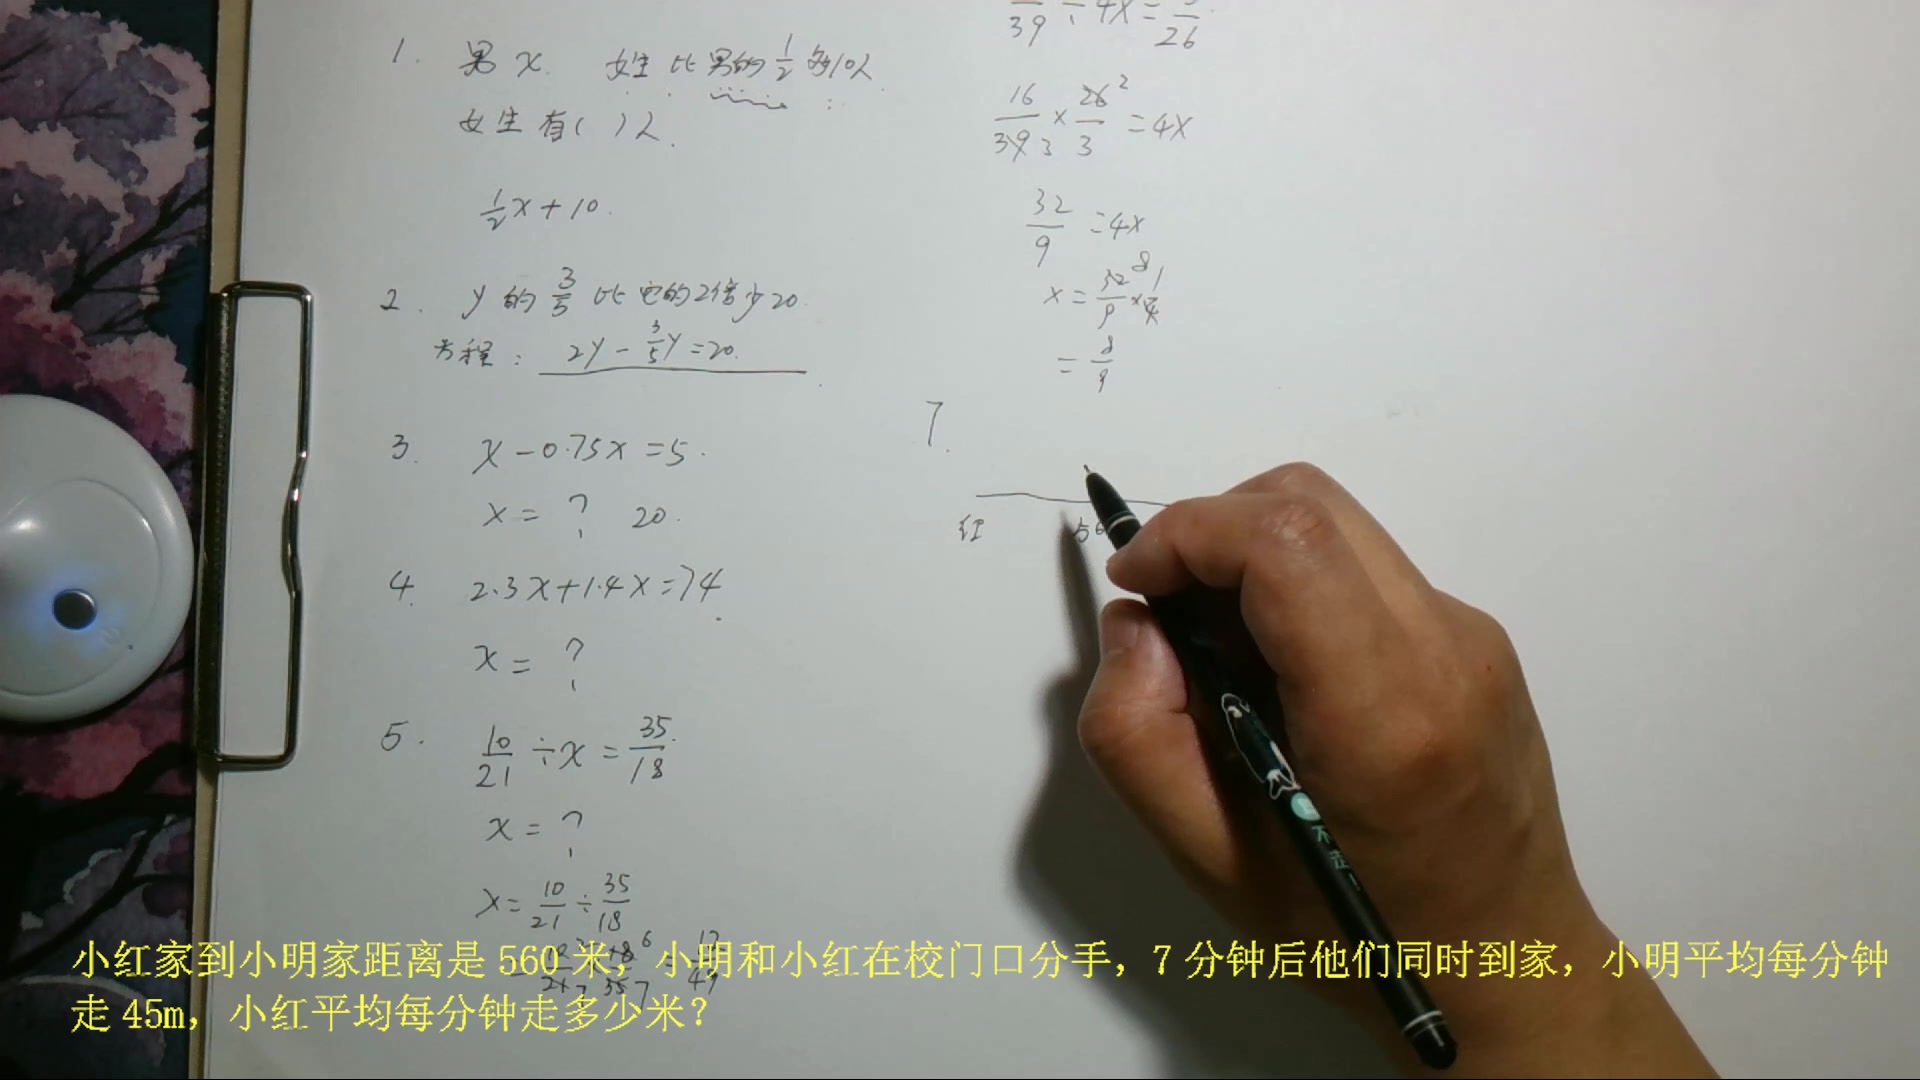 1. 男 x. 女生比男的 1/2 多10人
女生有( )人.
1/2 x + 10.
2. y 的 3/5 比它的2倍少20.
方程: 2y - 3/5 y = 20.
3. x - 0.75x = 5.
x = ? 20.
4. 2.3x + 1.4x = 74
x = ?
5. 10/21 ÷ x = 35/18
x = ?
x = 10/21 ÷ 35/18
39 ÷ 4x = 26
16/39 3 × 26 2/3 = 4x
32/9 = 4x
x = 32 8/9 × 1/4
= 8/9
7.
红
小红家到小明家距离是 560 米，小明和小红在校门口分手，7 分钟后他们同时到家，小明平均每分钟
走 45m，小红平均每分钟走多少米？